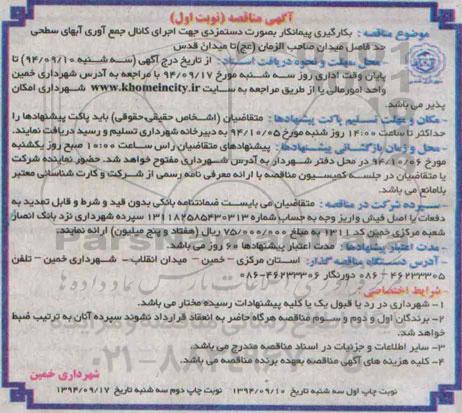 آگهی مناقصه (نوبت اول)
موضوع مناقصه : بکارگیری پیمانکار بصورت دستمزدی جهت اجرای کانال جمع آوری آبهای سطحی
حد فاصل میدان صاحب الزمان (عج)تا میدان قدس
- محل،مهلت و نحوه دریافت اسناد: از تاریخ درج آگهی (سه شنبه ۹۴/۰۹/۱۰) تا
پایان وقت اداری روز سه شنبه مورخ ۹۴/۰۹/۱۷ با مراجعه به آدرس شهرداری خمین
واحد امورمالی یا از طریق مراجعه به سایت www.khomeincity.ir شهرداری امکان
پذیر می باشد.
مکان و مهلت تسلیم پاکت پیشنهادها : متقاضیان (اشخاص حقیقی،حقوقی) باید پاکت پیشنهادها را
حداکثر تا ساعت ۱۴:۰۰ روز شنبه مورخ ۹۴/۱۰/۰۵ به دبیرخانه شهرداری تسلیم و رسید دریافت نمایند.
محل و زمان بازگشائی پیشنهادها : پیشنهادهای متقاضیان راس ساعت ۱۰:۰۰ صبح روز یکشنبه
مورخ ۹۴/۱۰/۰۶ در محل دفتر شهردار به آدرس شهرداری مفتوح خواهد شد. حضور نماینده شرکت
یا متقاضیان در جلسه کمیسیون مناقصه با ارائه معرفی نامه رسمی از شرکت و کارت شناسائی معتبر
بلامانع می باشد.
سپرده شرکت در مناقصه : متقاضیان می بایست ضمانتنامه بانکی بدون قید و شرط و قابل تمدید به
دفعات یا اصل فیش واریز وجه به حساب شماره ۱۳۱۱۸۲۵۸۵۴۳۰۳۱۳ سپرده شهرداری نزد بانک انصار
شعبه مرکزی خمین کد ۱۳۱۱ به مبلغ ۷۵/۰۰۰/۰۰۰ ریال (هفتاد و پنج میلیون) ارائه نمایند.
- مدت اعتبار پیشنهادها : مدت اعتبار پیشنهادها ۶۰ روز می باشد.
- آدرس دستگاه مناقصه گذار: استان مرکزی - خمین - میدان انقلاب - شهرداری خمین - تلفن
۴۶۲۳۳۳۰۵ - ۰۸۶ دورنگار ۴۶۲۳۳۳۰۶-۰۸۶
-شرایط اختصاصی:
۱- شهرداری در رد یا قبول یک یا کلیه پیشنهادات رسیده مختار می باشد.
۲- برندگان اول و دوم و سوم مناقصه هرگاه حاضر به انعقاد قرارداد نشوند سپرده آنان به ترتیب ضبط
خواهد شد.
۳- سایر اطلاعات و جزئیات در اسناد مناقصه مندرج می باشد.
۴- کلیه هزینه های آگهی مناقصه بعهده برنده مناقصه می باشد.
شهرداری خمین
نوبت چاپ اول سه شنبه تاریخ ۱۳۹۴/۰۹/۱۰ نوبت چاپ دوم سه شنبه تاریخ ۱۳۹۴/۰۹/۱۷